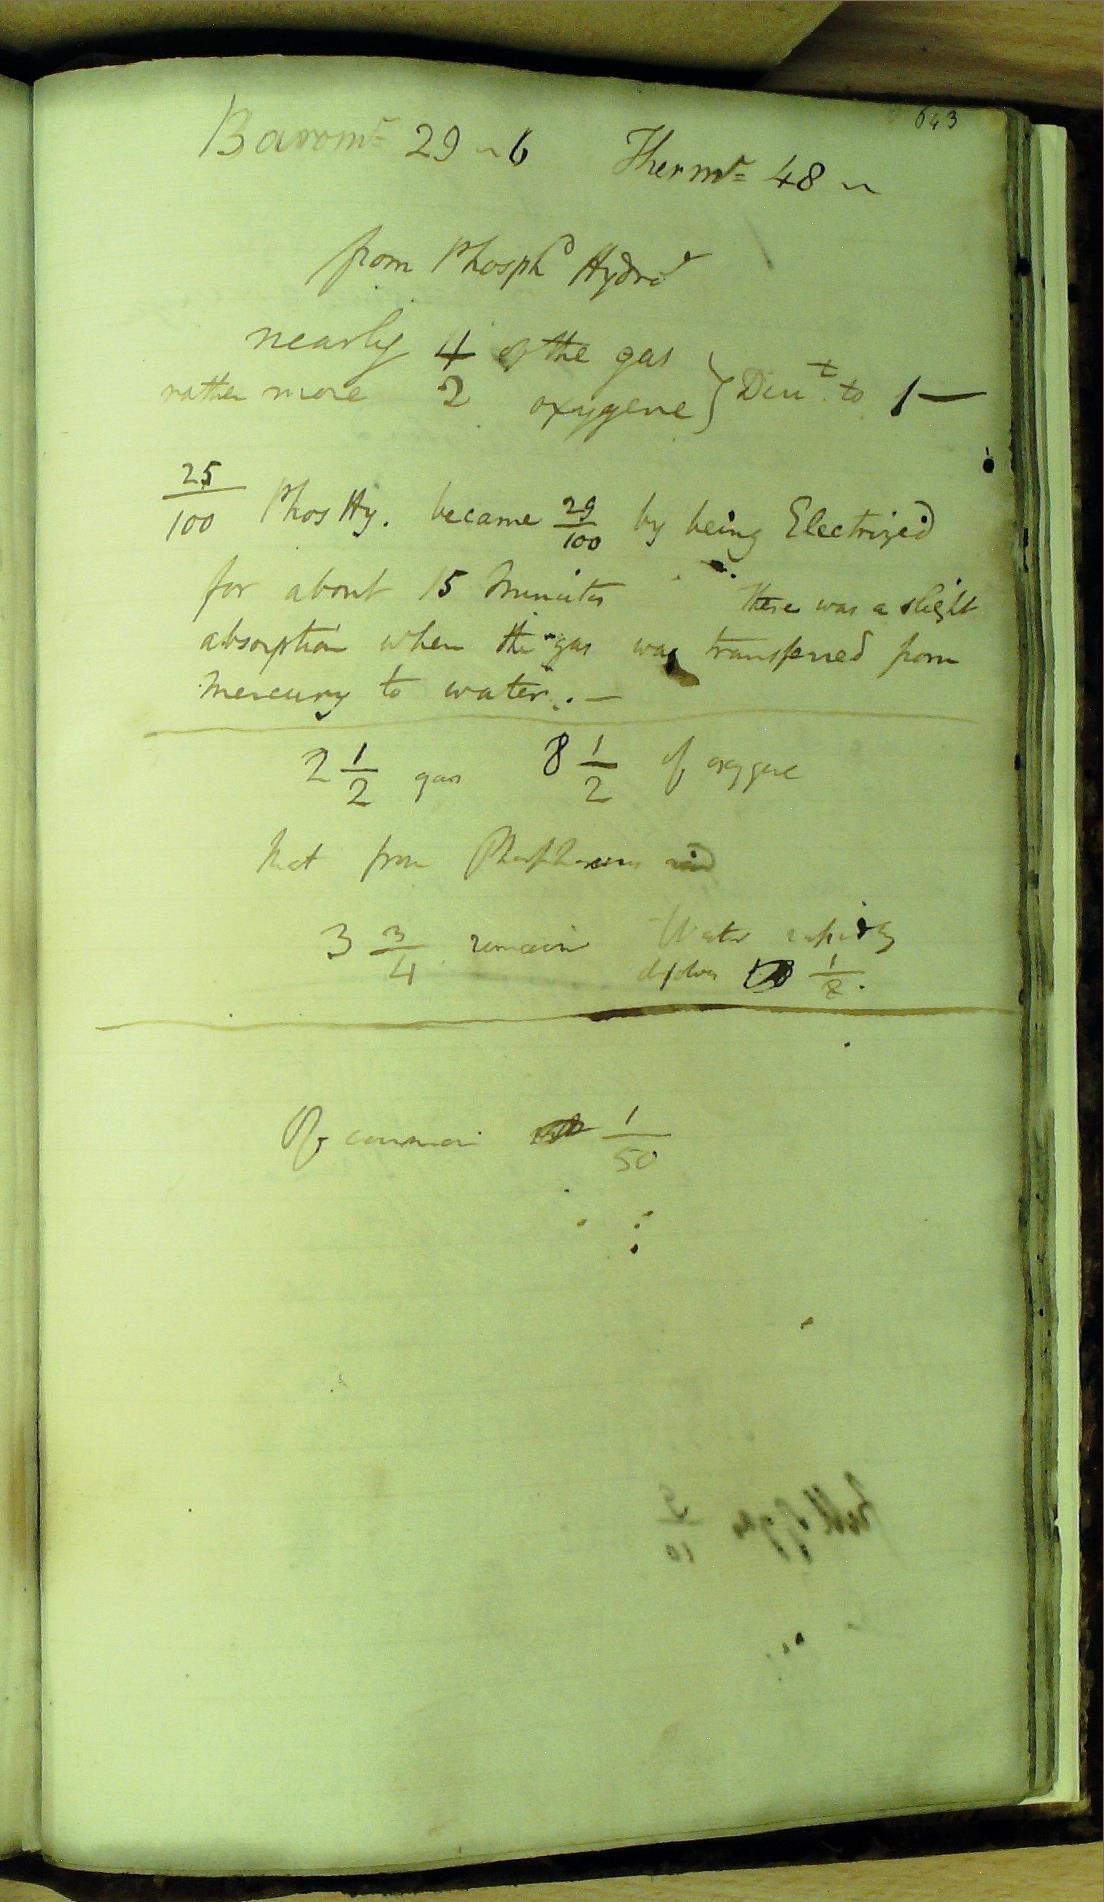 643
Baromr 29 - 6 Thermr 48 -
from Phosphd Hydrn
nearly 4 of the gas
rather more 2 oxygene } Dimt to 1 —
25/100 Phos Hy. became 29/100 by being Electrized
for about 15 Minutes there was a slight
absorption when the gas was transferred from
Mercury to water. —
2 1/2 gas 8 1/2 of oxygene
Not from Phosphorous acid
3 3/4 remain Water rapidly
dissolves 1/8.
Of common 1/50